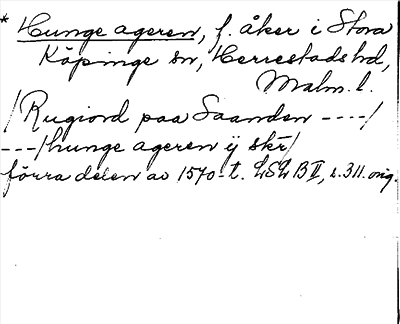 * Hunge ageren, f. åker i Stora
Köpinge sn, Herrestads hd,
Malm. l.
/Rugiord paa Saanden ----/
---/hunge ageren ij skr/
förra delen av 1570-t. LSL B II, s. 311. orig.